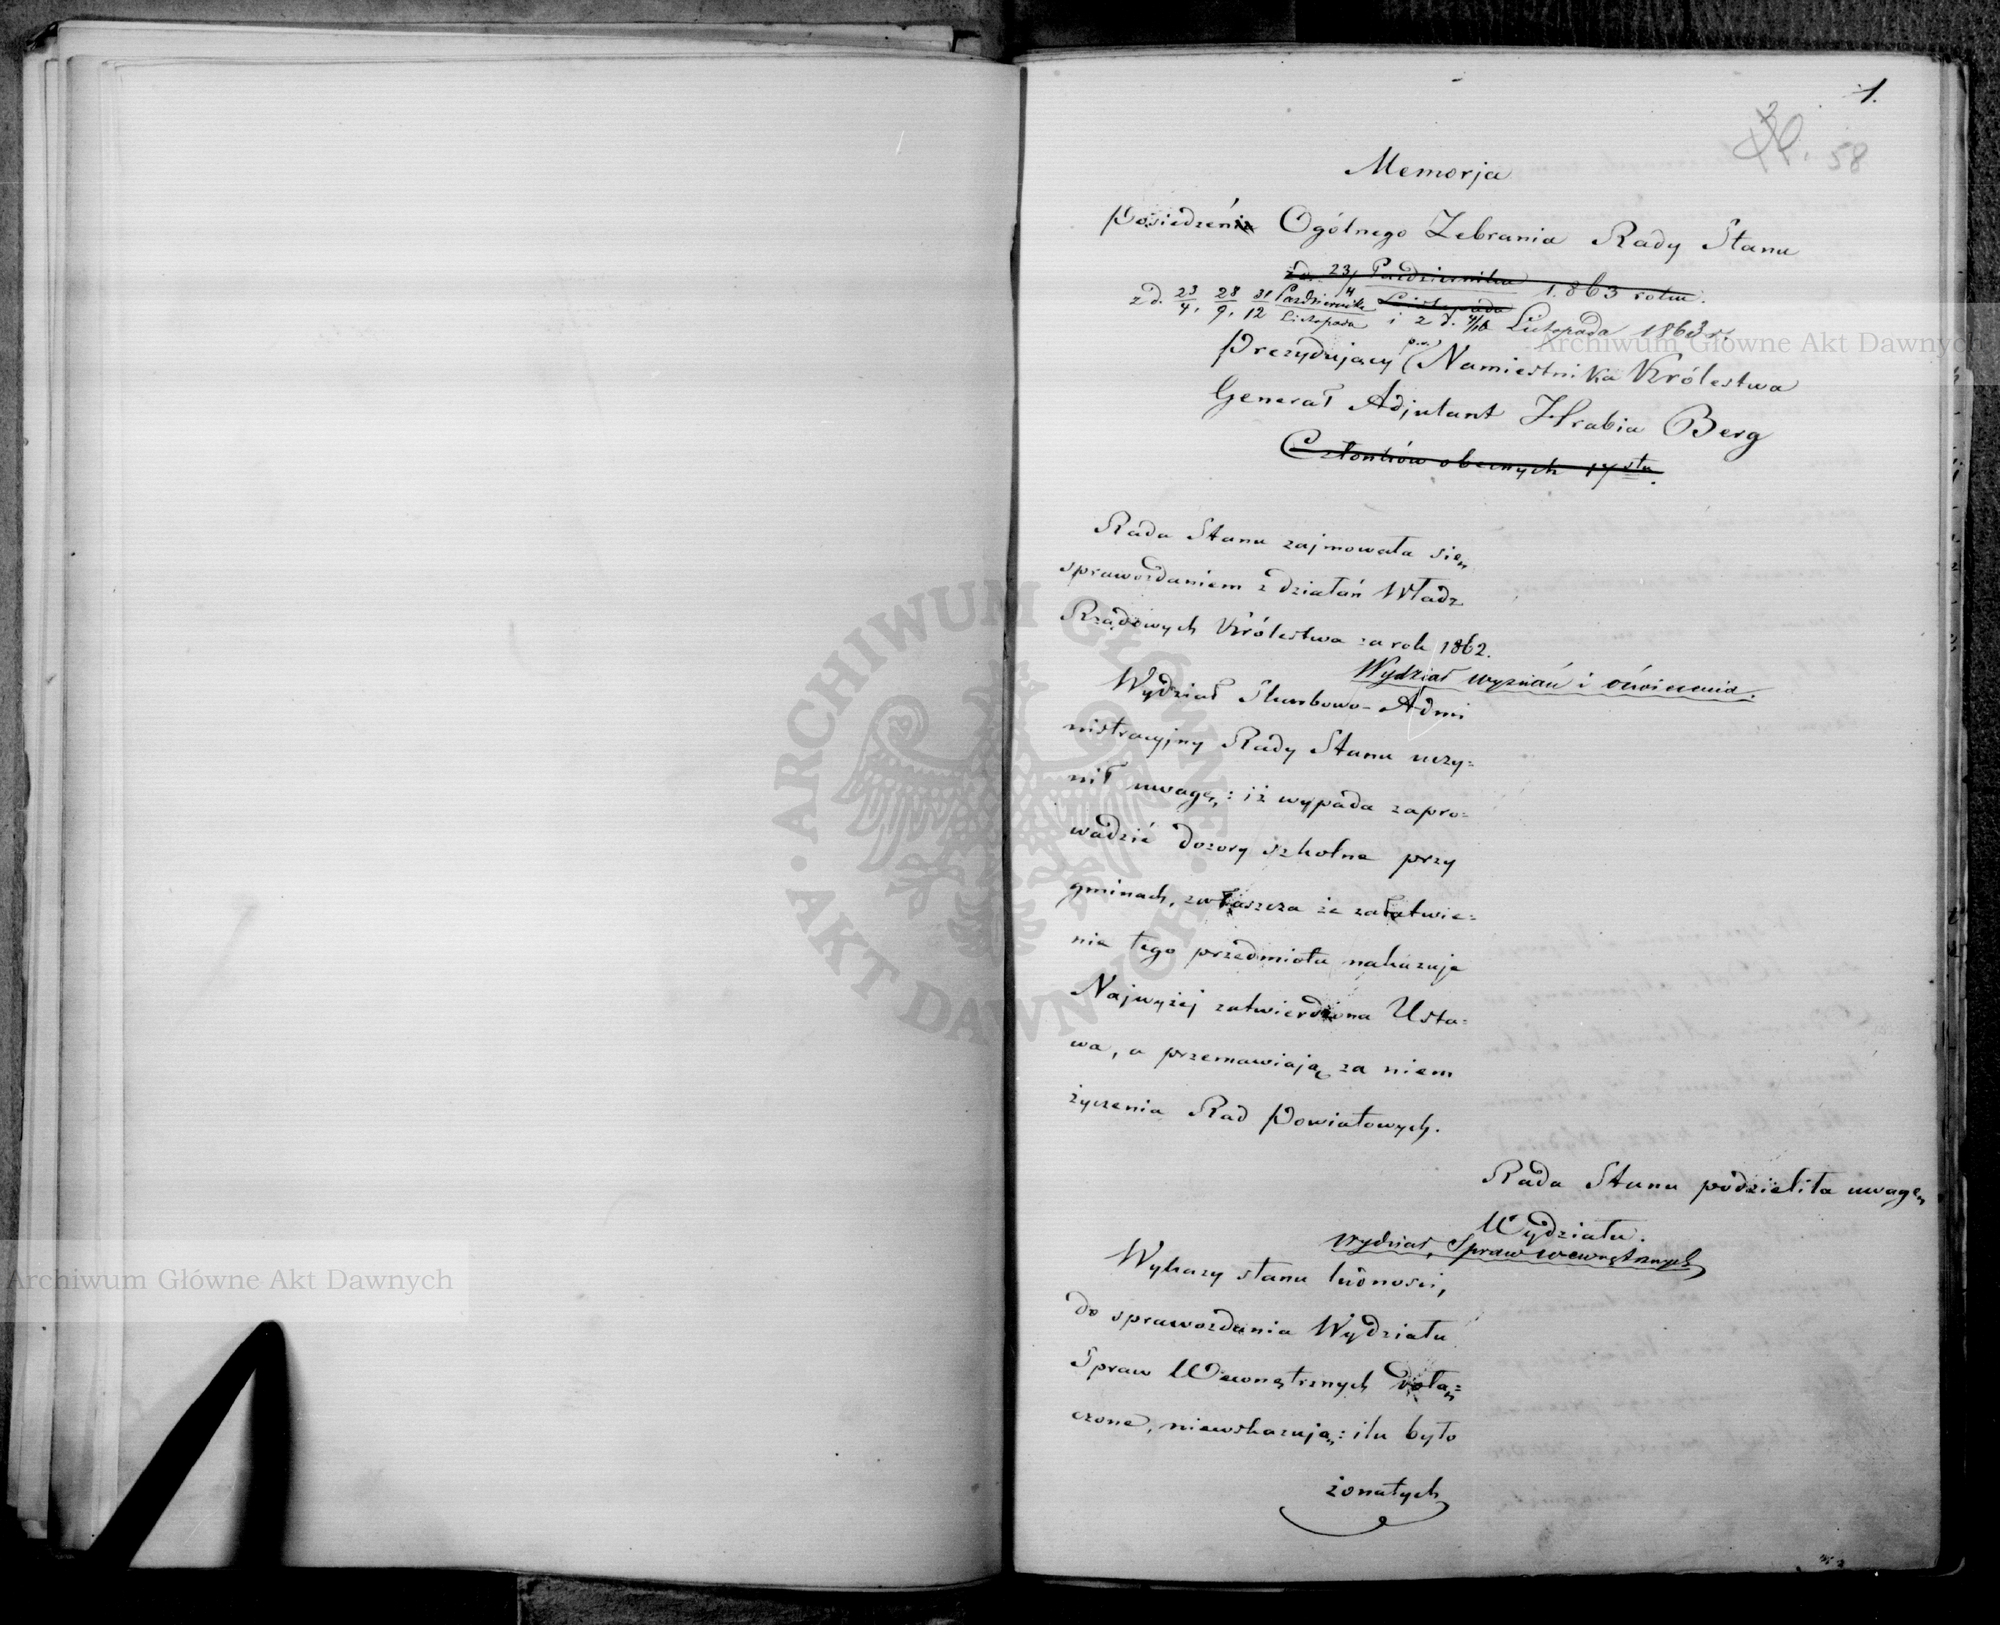 1.
58
Memorja
Posiedzenia Ogólnego Zebrania Rady Stanu
z d. 23/4 Października 1863 roku.
z d. 23/4, 28/9, 31/12 Października/Listopada Listopada i z d. 4/16 Listopada 1863 r.
Prezydujący p.o. Namiestnika Królestwa
Generał Adjutant Hrabia Berg
Członków obecnych 17stu.
Rada Stanu zajmowała się
sprawozdaniem z działań Władz
Rządowych Królestwa za rok 1862.
Wydział wyznań i oświecenia.
Wydział Skarbowo-Admi
nistracyjny Rady Stanu uczy=
nił uwagę: iż wypada zapro=
wadzić dozory szkolne przy
gminach, zwłaszcza że załatwie=
nie tego przedmiotu nakazuje
Najwyżej zatwierdzona Usta=
wa, a przemawiają za niem
życzenia Rad Powiatowych.
Rada Stanu podzieliła uwagę
Wydziału.
Wydział Spraw wewnętrznych
Wykazy stanu ludności,
do sprawozdania Wydziału
Spraw Wewnętrznych dołą=
czone, niewskazują: ilu było
żonatych
Archiwum Główne Akt Dawnych
Archiwum Główne Akt Dawnych
ARCHIWUM GŁÓWNE · AKT DAWNYCH ·